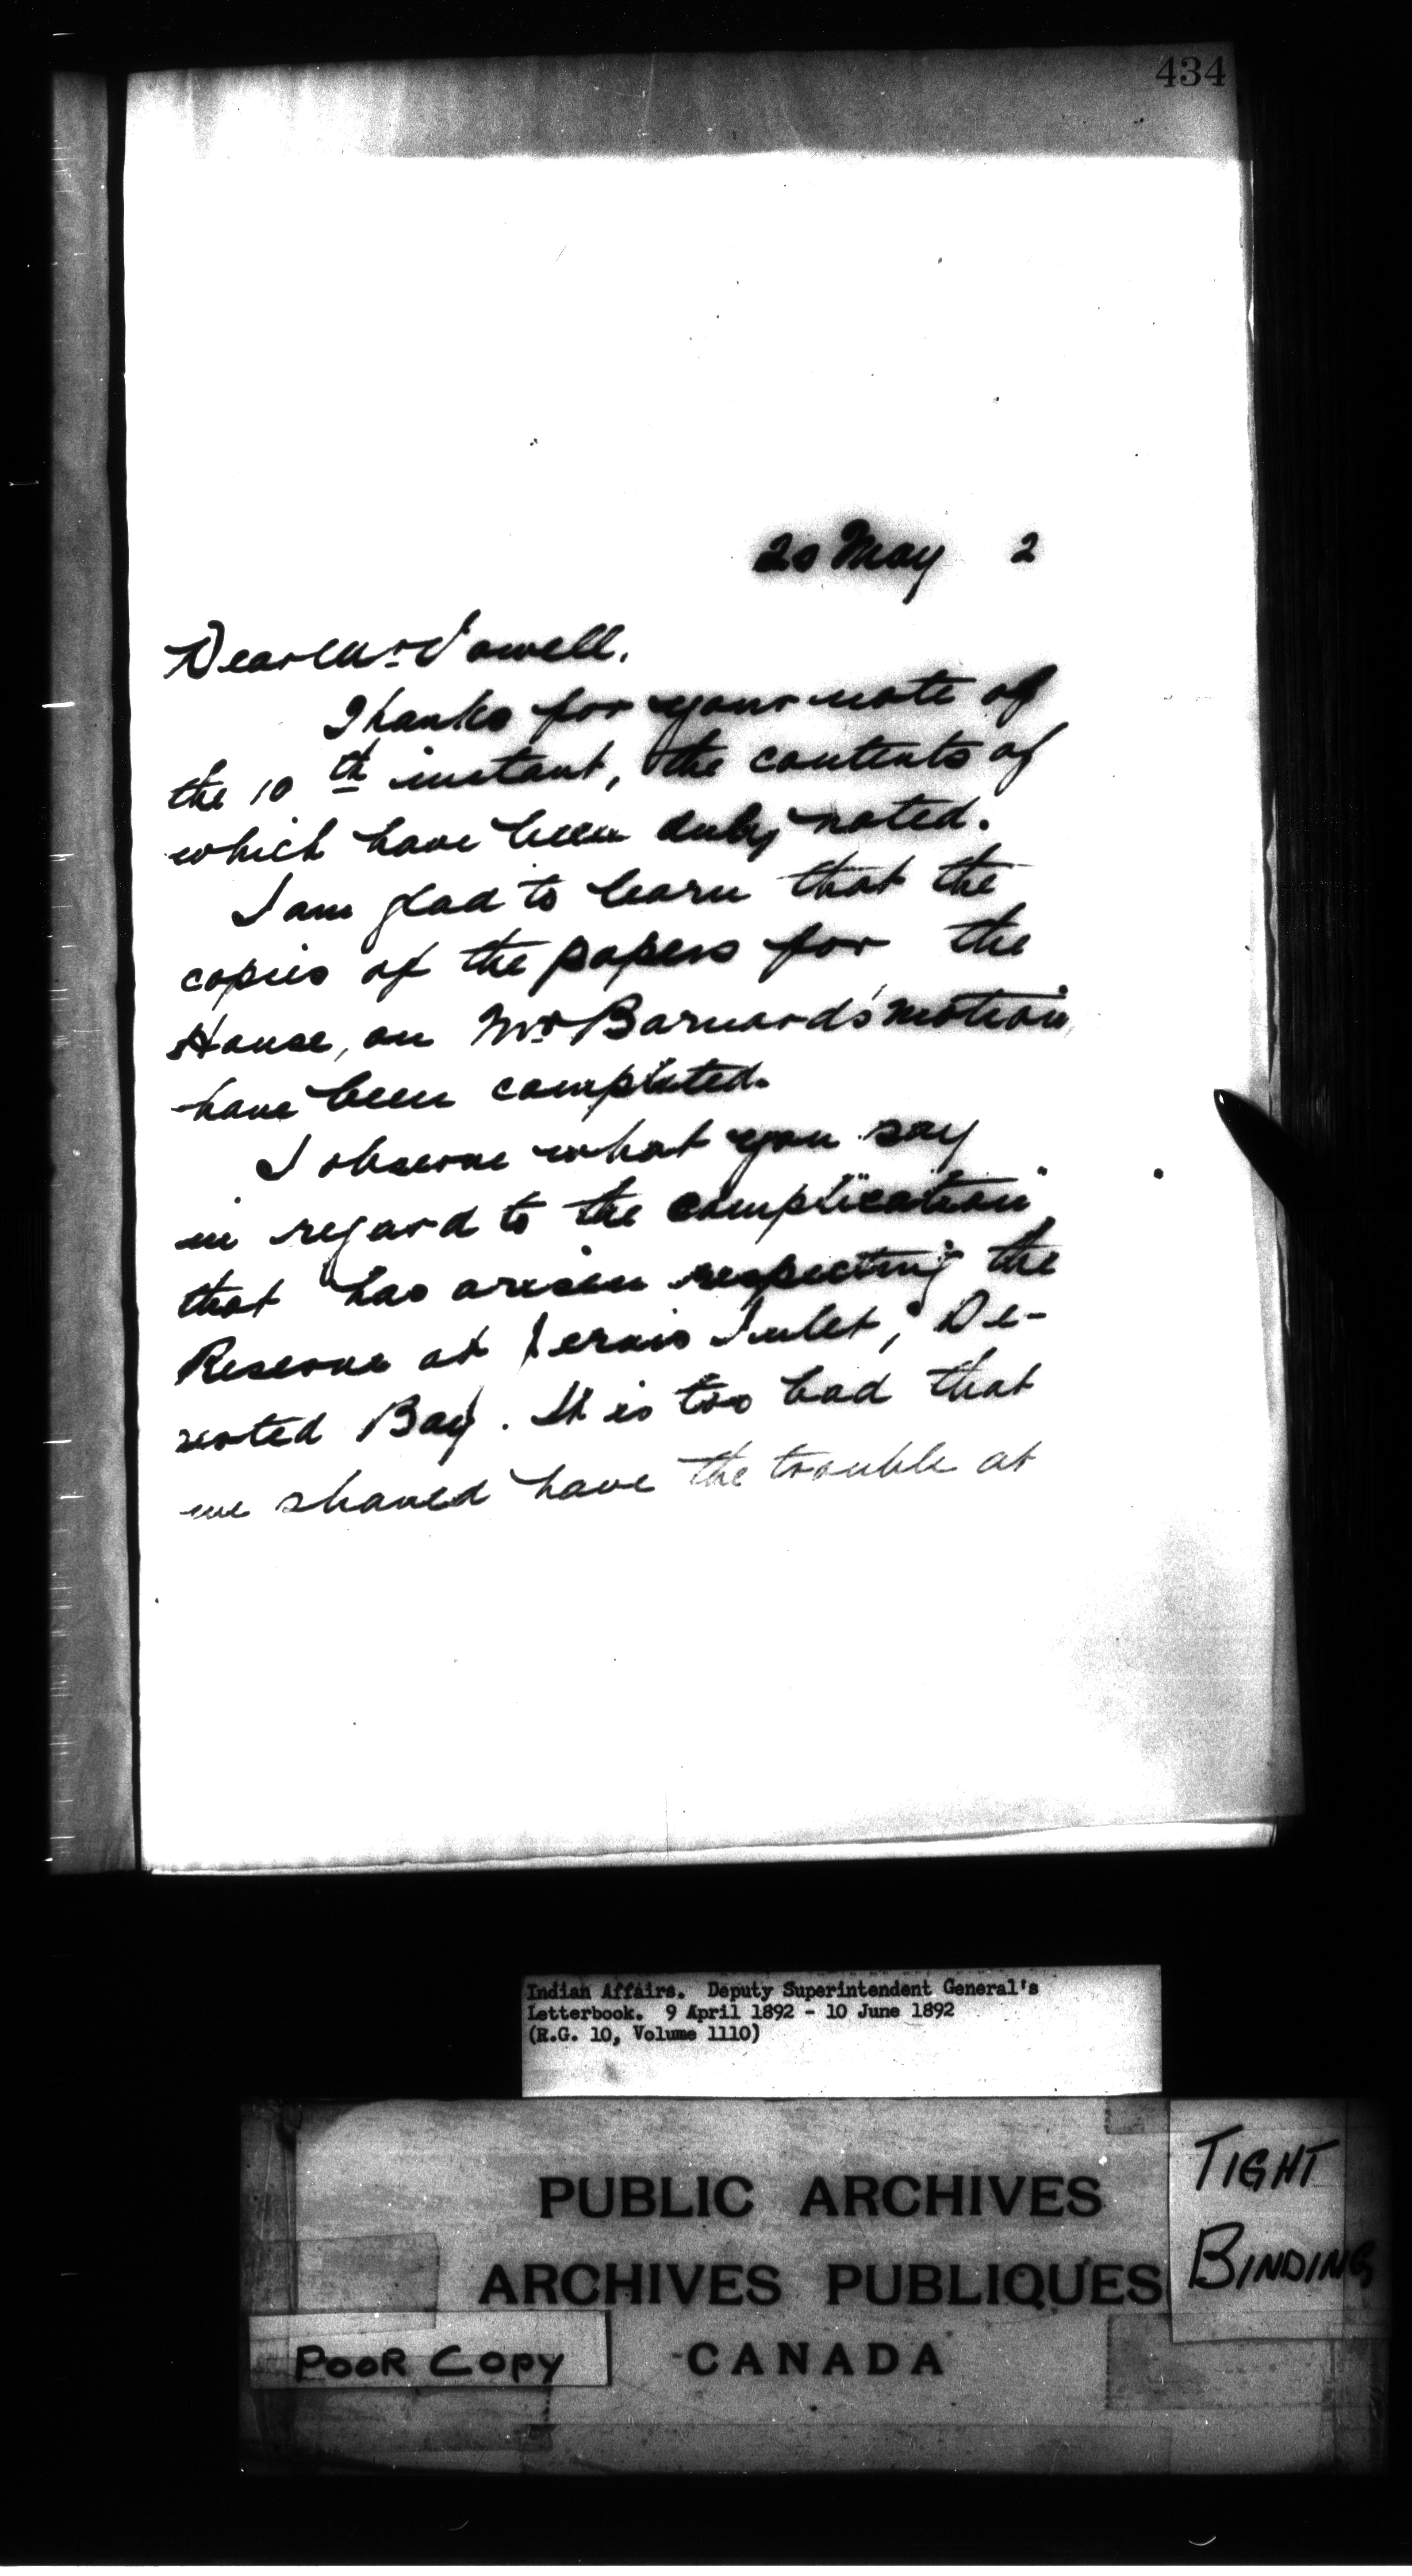 434
20 May 2
Dear Mr. Vowell,
Thanks for your note of
the 10th instant, the contents of
which have been duly noted.
I am glad to learn that the
copies of the papers for the
House, on Mr. Barnard's motion,
have been completed.
I observe what you say
in regard to the "complication"
that has arisen respecting the
Reserve at Jervis Inlet, De-
serted Bay. It is too bad that
we should have the trouble at
Indian Affairs. Deputy Superintendent General's
Letterbook. 9 April 1892 - 10 June 1892
(R.G. 10, Volume 1110)
PUBLIC ARCHIVES
ARCHIVES PUBLIQUES
CANADA
TIGHT
BINDING
POOR COPY